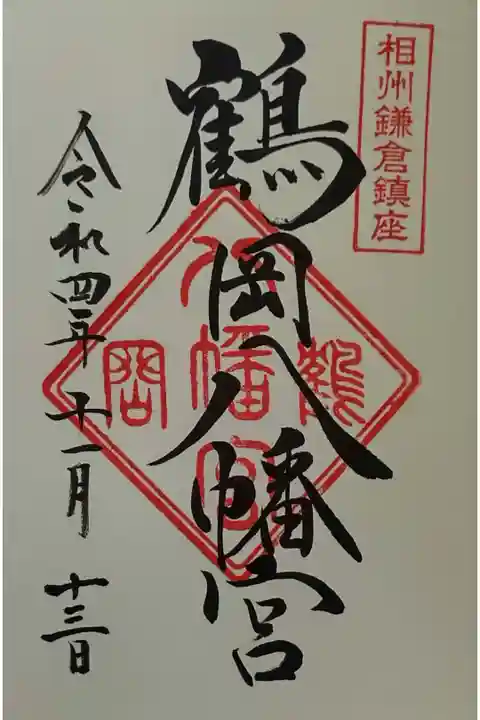 相州鎌倉鎮座
鶴岡八幡宮
鶴岡
八幡宮
令和四年十一月十三日